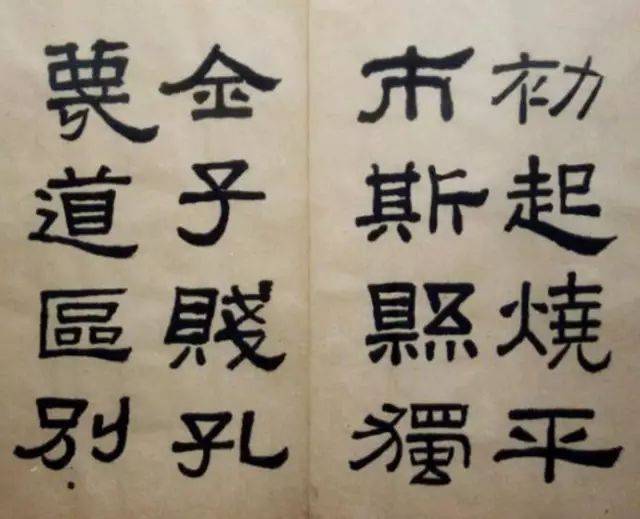 初起燒平
市斯縣獨
全子賤孔
蔑道區別